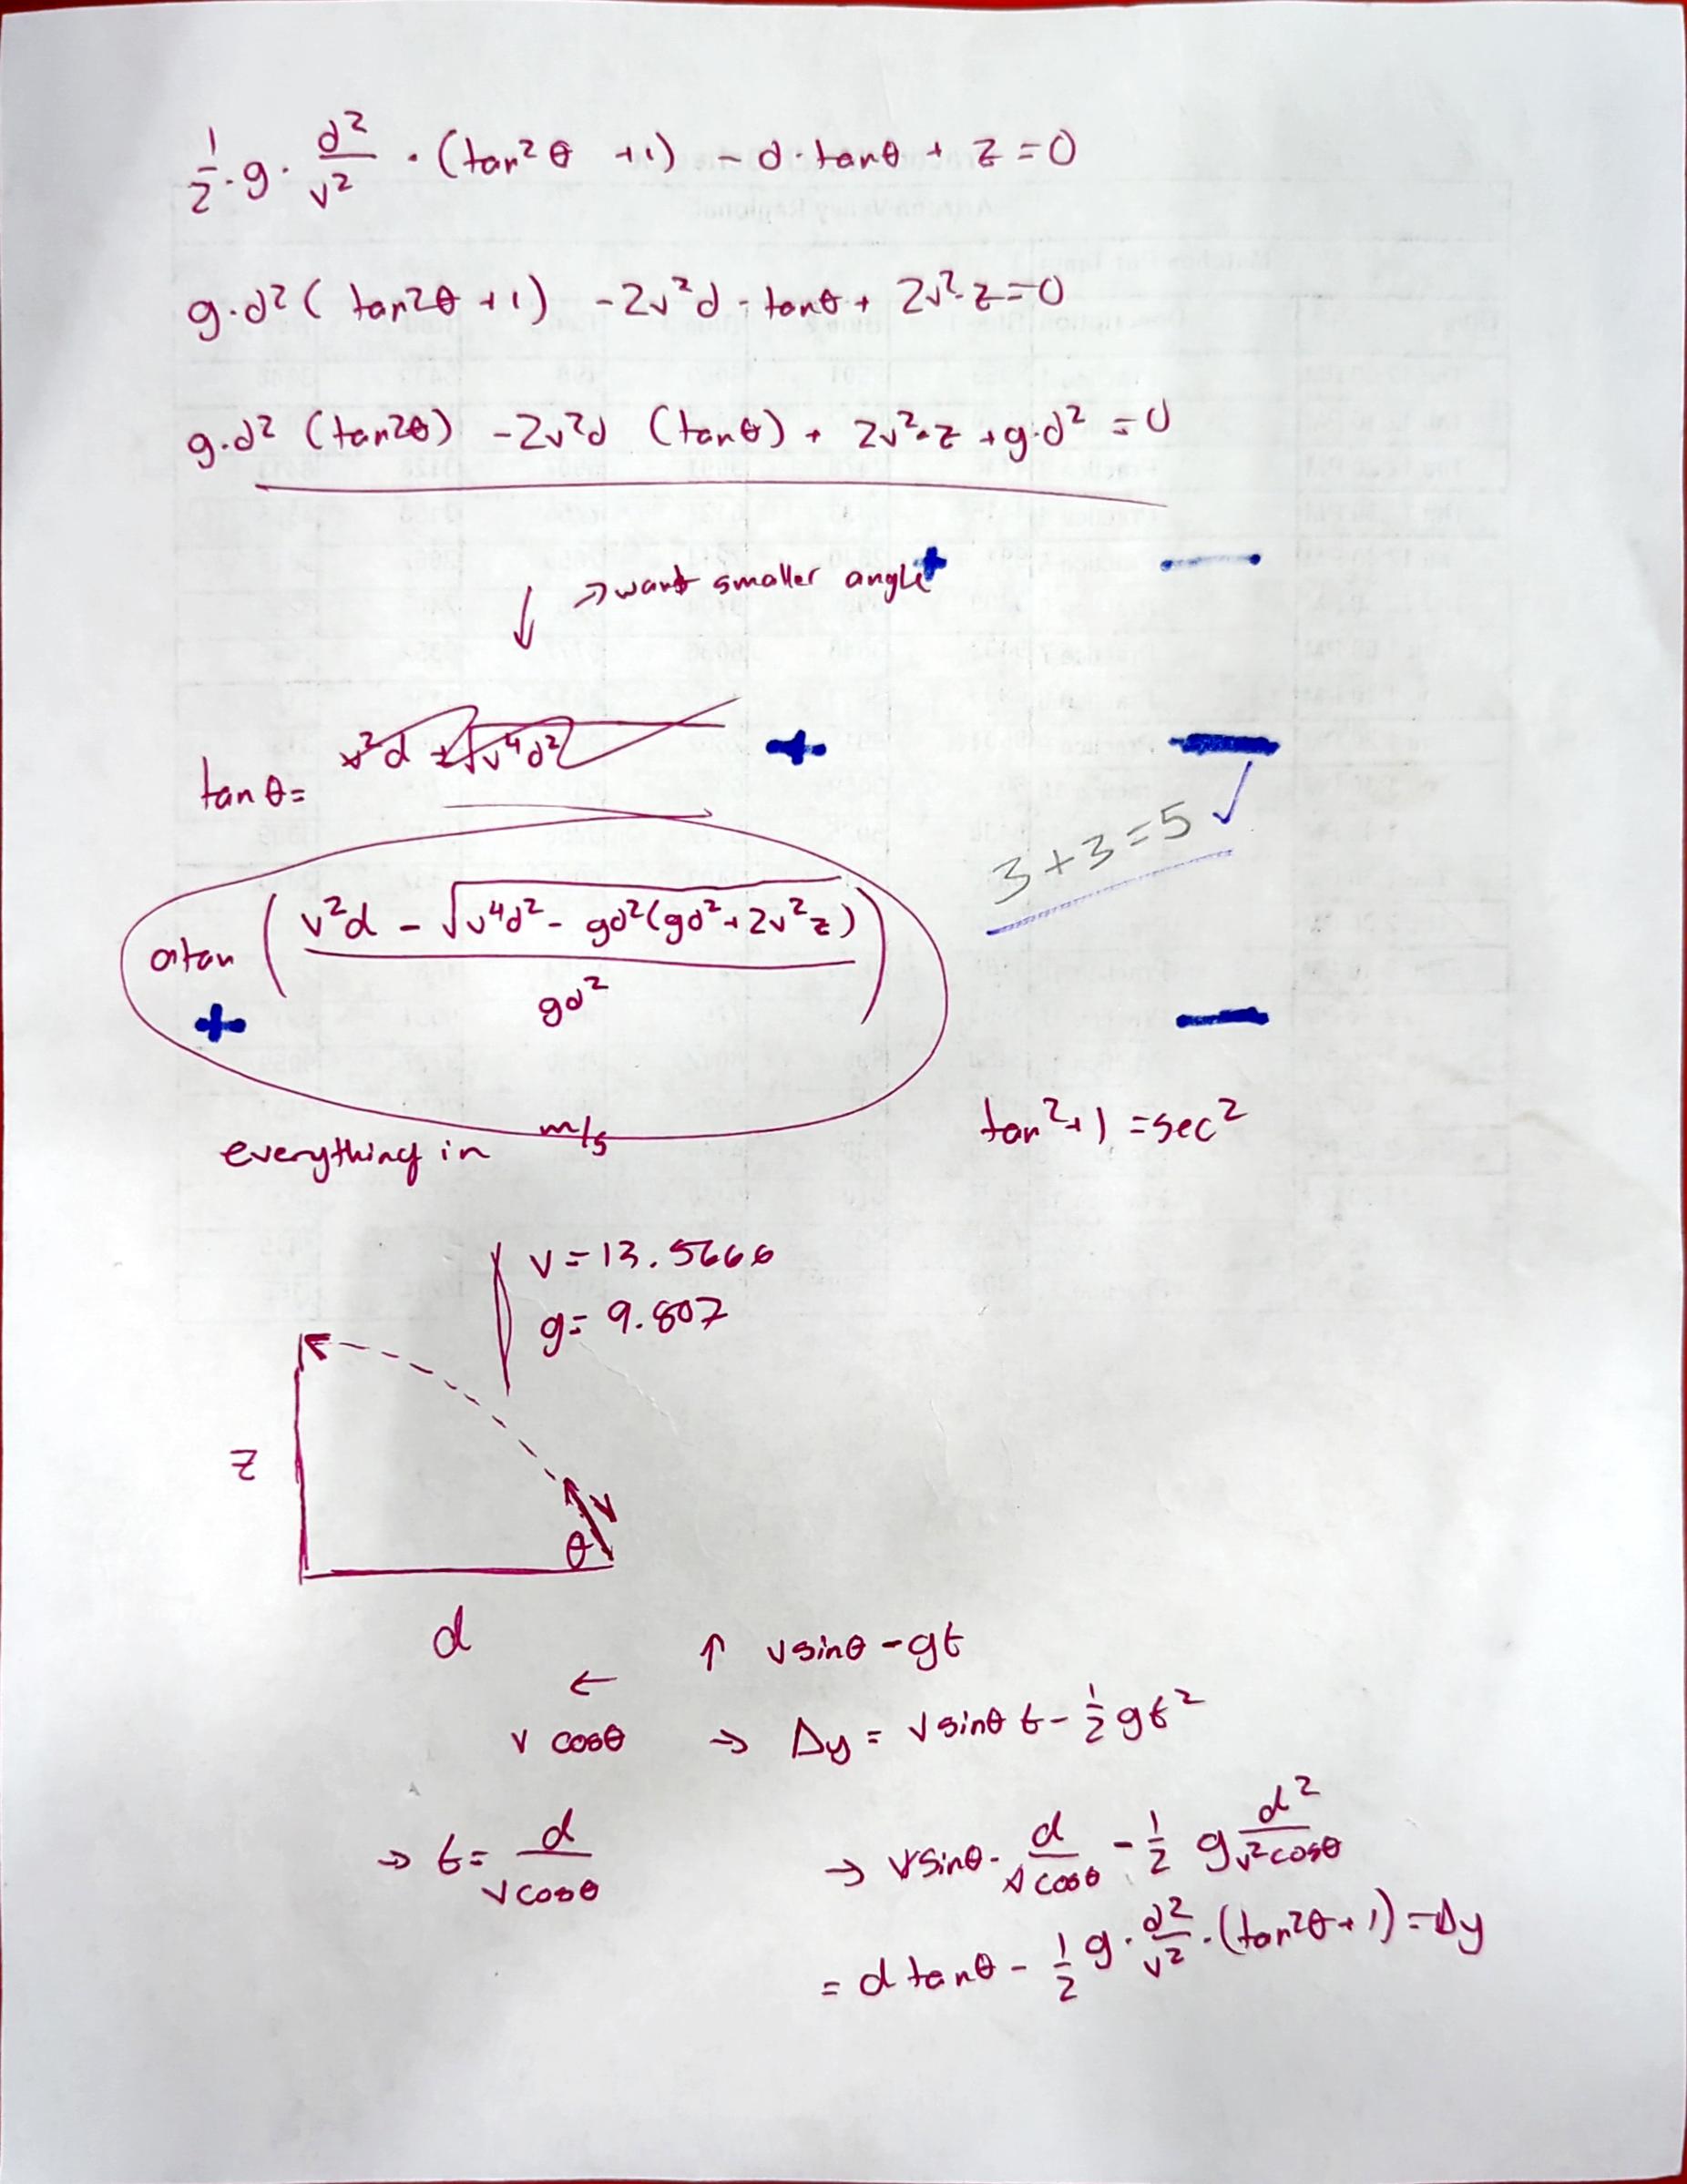 1/2 · g · d²/v² · (tan²θ +1) - d · tanθ + z = 0
g·d² ( tan2θ +1) -2v²d · tanθ + 2v²·z=0
g·d² (tan2θ) -2v²d (tanθ) + 2v²·z +g·d² = 0
↓ → want smaller angle + —
tan θ= v²d ± √v⁴d² + —
3+3=5 ✓
atan ( (v²d - √(v⁴d² - gd²(gd²+2v²z))) / gd² )
+ —
tan²+1 =sec²
everything in m/s
v=13.5666
g= 9.807
z
v
θ
d
↑ vsinθ -gt
←
v cosθ → Δy = vsinθ t - 1/2 gt²
→ t= d/vcosθ → vsinθ · d/vcosθ - 1/2 g d²/v²cosθ
= d tanθ - 1/2 g · d²/v² · (tan2θ+1) = Δy